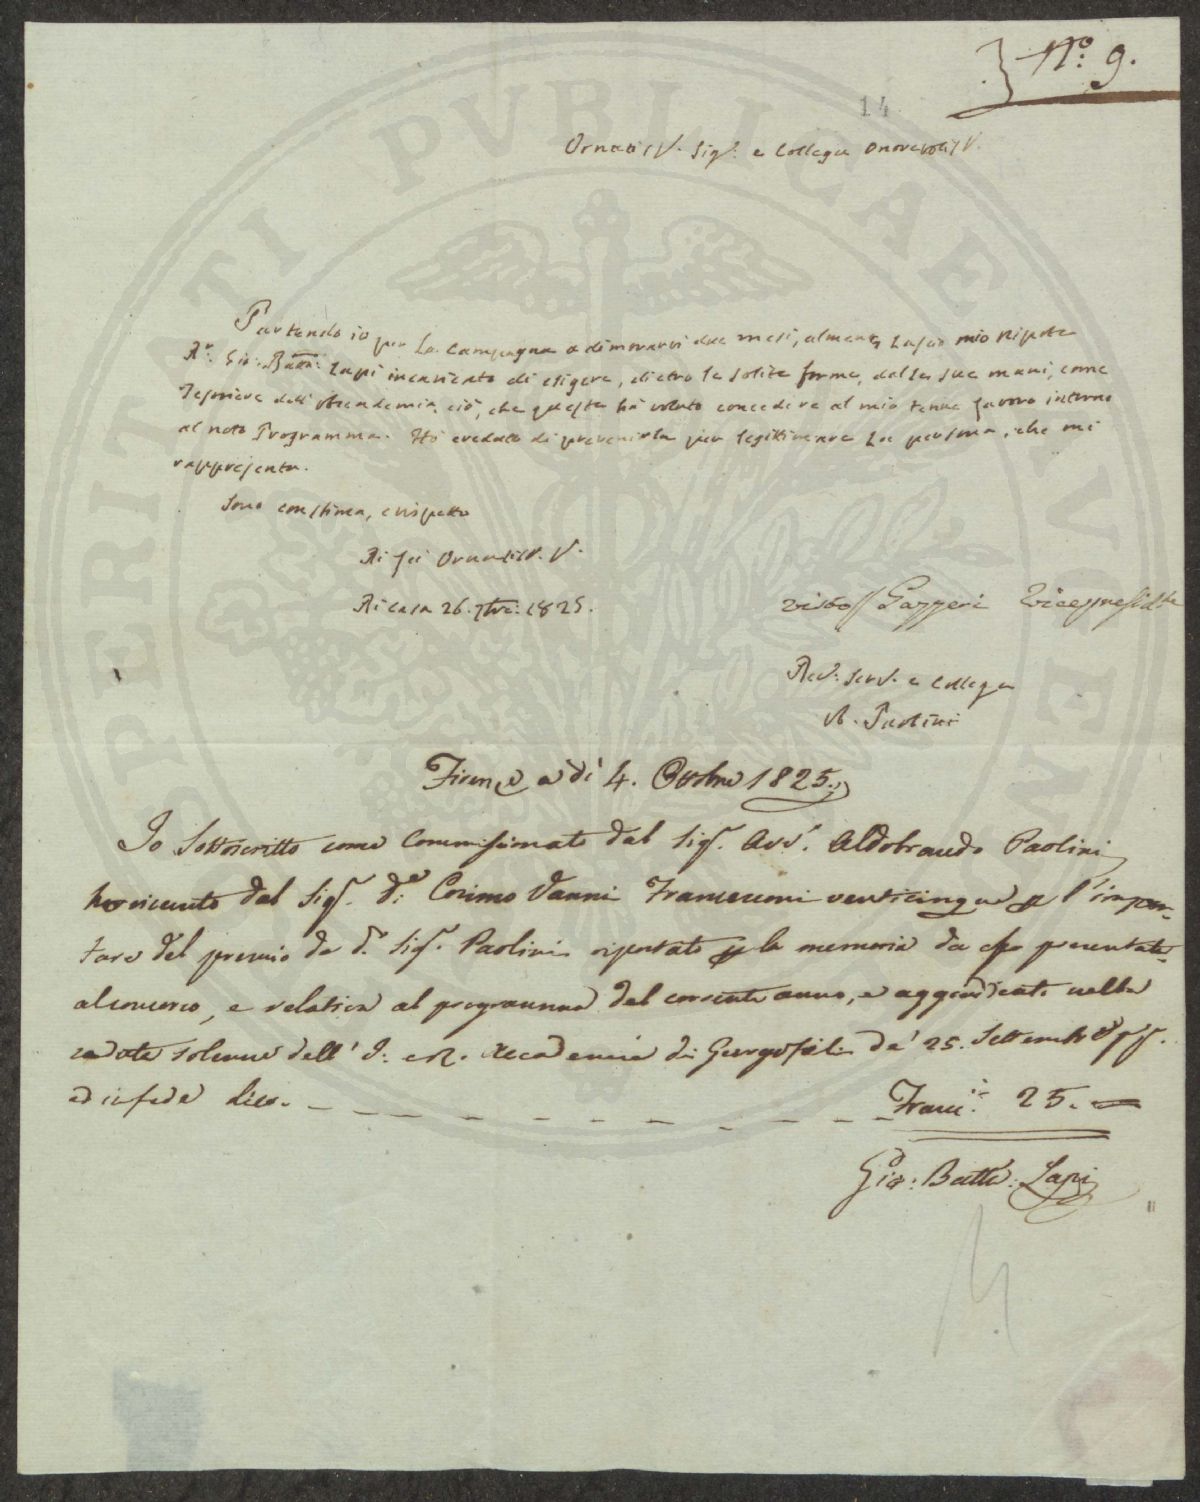 N.º 9.
14
Ornatis.V. Sig.r e Collega Onorevolis.V.
Partendo io per la Campagna a dimorarvi due mesi, almeno, lascio mio Nipote
D.r Gio: Batta: Lapi incaricato di esigere, dietro le solite forme, dalle sue mani, come
Tesoriere dell'Accademia, ciò, che questa ha voluto concedere al mio tenue lavoro intorno
al noto Programma. Ho creduto di prevenirla per legittimare la persona, che mi
rappresenta.
Sono con stima, e rispetto
Di Lei Ornatis.V. V.
Di Casa 26. 7bre: 1825.
visto Gazzeri Vicepresidte
Dev: Serv. e Collega
A. Paolini
Firenze a dì 4. Ottobre 1825.
Io Sottoscritto come Commissionato dal Sig.r Avv.º Aldobrando Paolini
ho ricevuto dal Sig.r D.re Cosimo Vanni Francesconi venticinque p l'impor-
tare del premio da d.º Sig.r Paolini riportato p la memoria da esso presentata
al concorso, e relativa al programma del corrente anno, e aggiudicato nella
seduta solenne dell' I: e R. Accademia dei Georgofili de' 25. Settembre
ed in fede dico. Franc.ni 25.
Gio: Batta: Lapi
VERITATI PVBLICAE